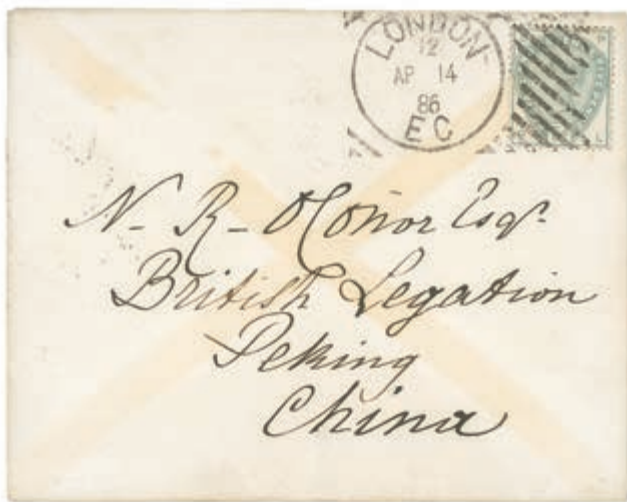 LONDON
12
AP 14
86
E C
N. R. O'Conor Esqr.
British Legation
Peking
China